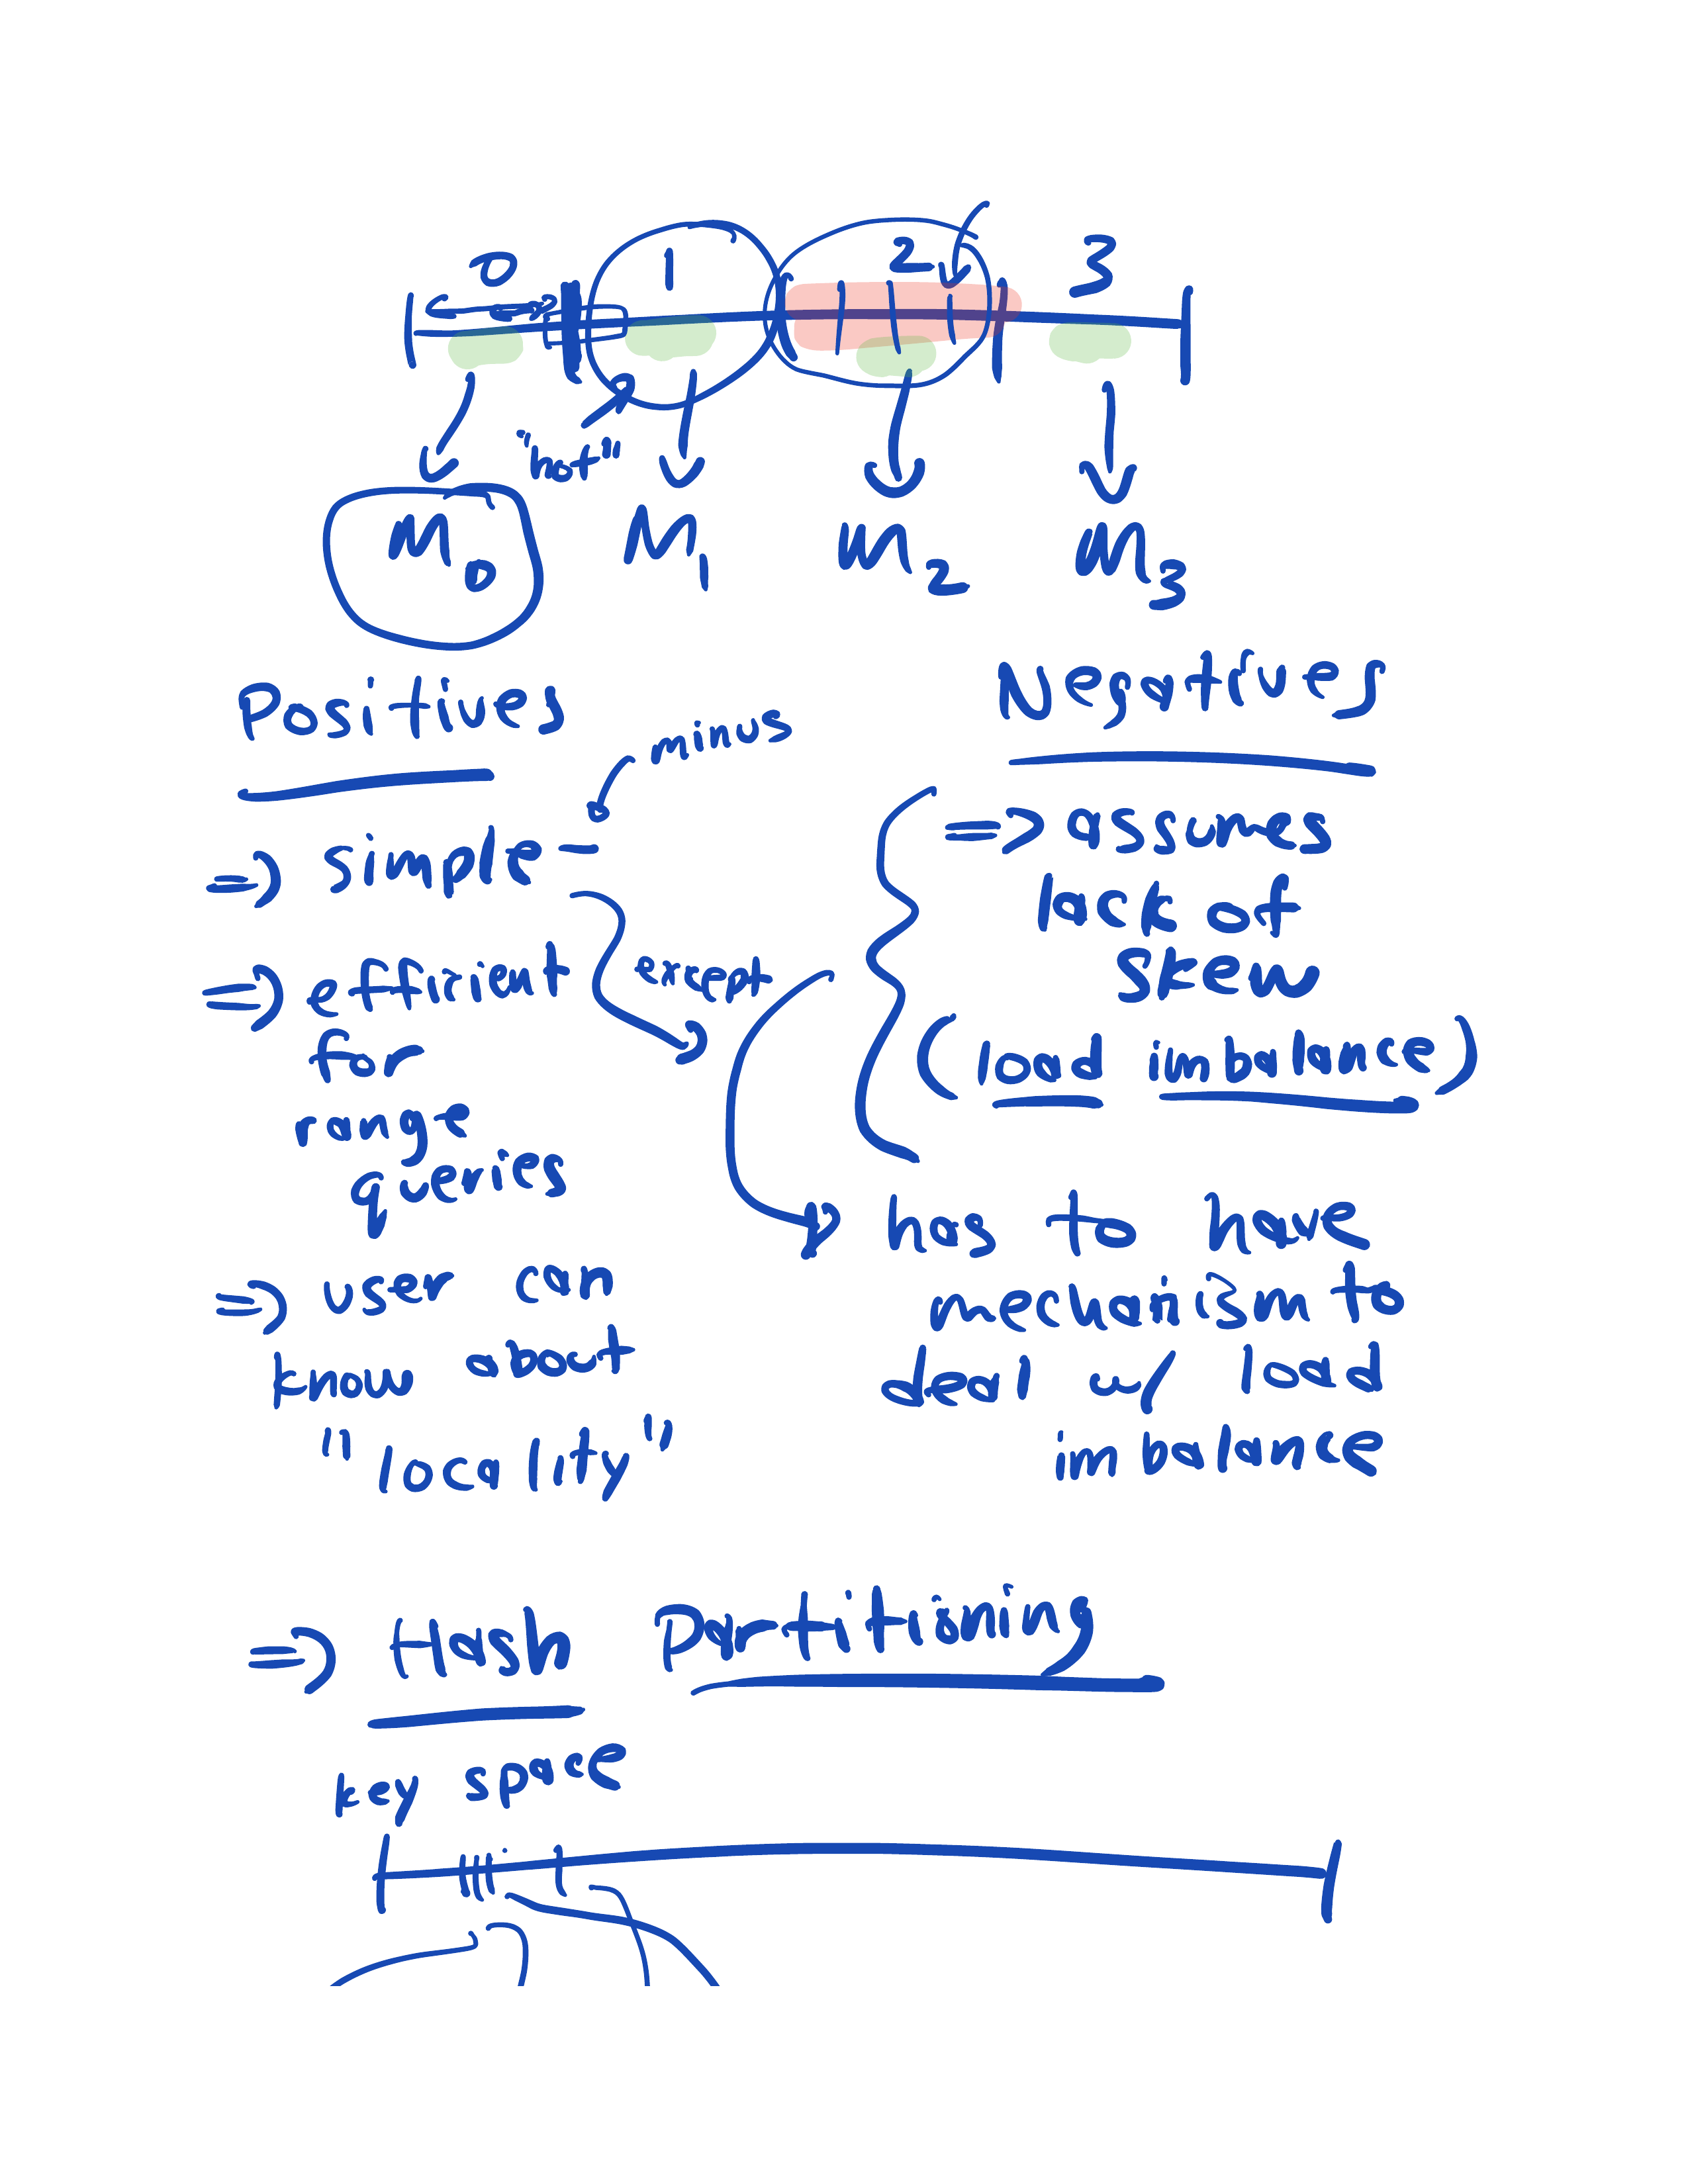 0 1 2 3
"hot"
M0 M1 M2 M3
Positives
minus
=> simple -
except
=> efficient
for
range
queries
=> user can
know about
"locality"
Negatives
=> assumes
lack of
skew
(load imbalance)
has to have
mechanism to
deal w/ load
imbalance
=> Hash Partitioning
key space